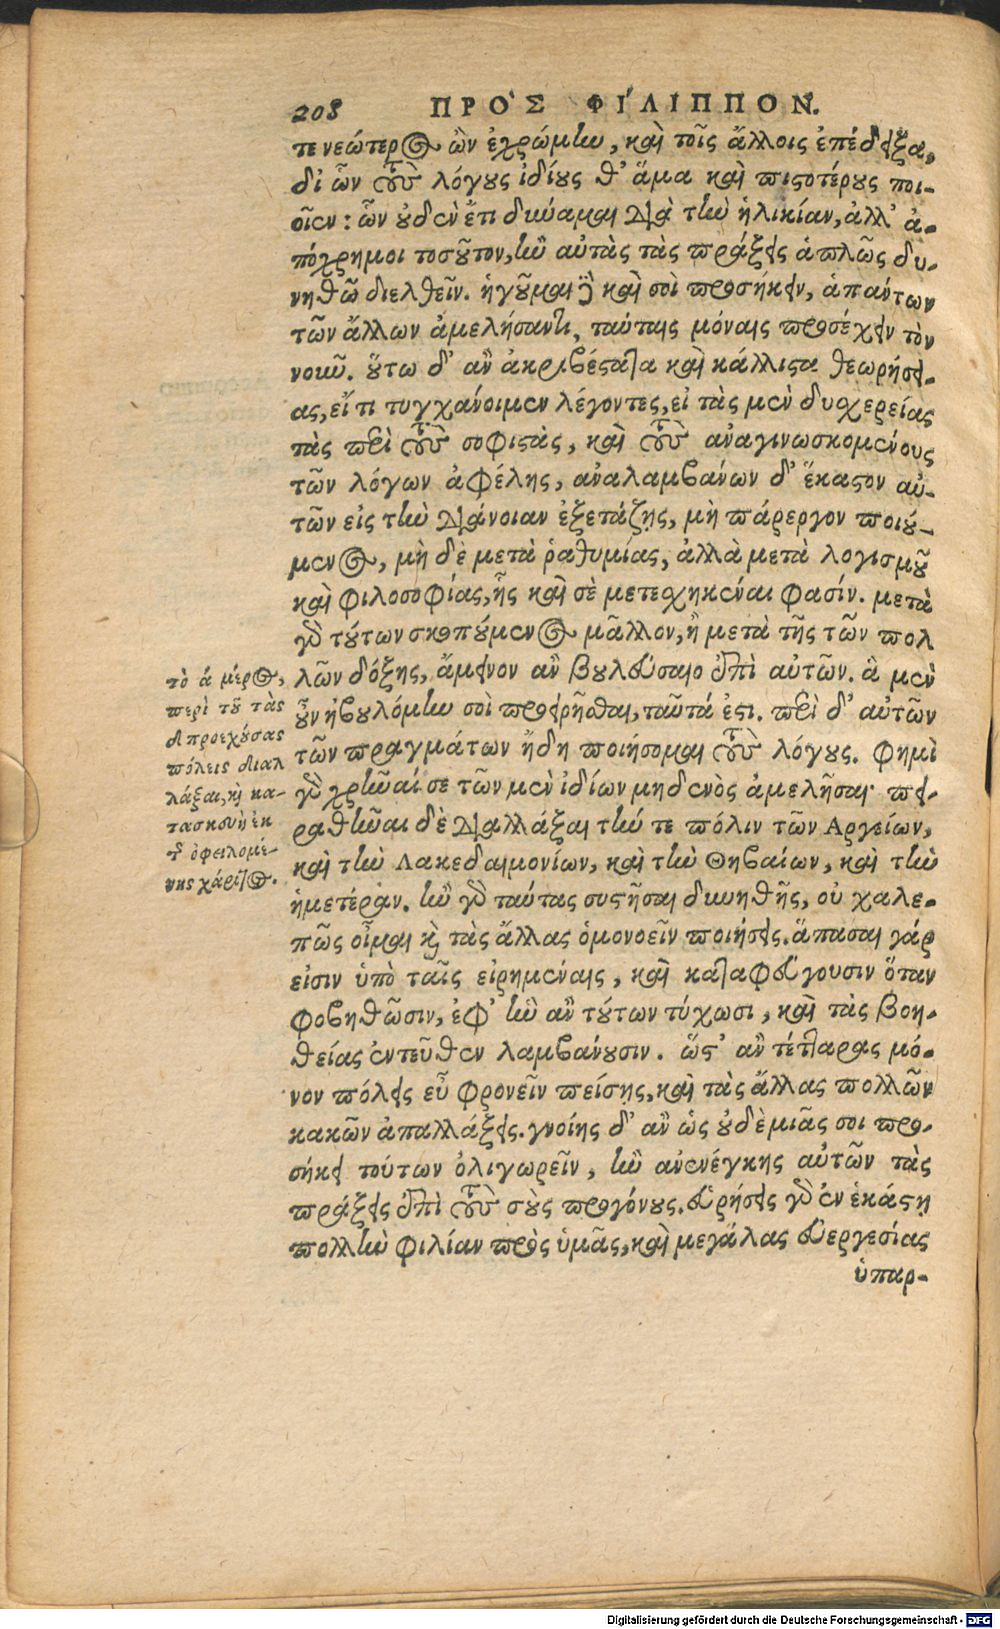 208 ΠΡΟ᾽Σ ΦΙ´ΛΙΠΠΟΝ.
τε νεώτερος ὢν ἐχρώμην, καὶ τοῖς ἄλλοις ἐπέδειξα,
δι ὧν τοὺς λόγους ἰδίους θ᾽ ἅμα καὶ πιστοτέρους ποι-
οῖεν: ὧν οὐδὲν ἔτι δύναμαι διὰ τὴν ἡλικίαν, ἀλλ᾽ ἀ-
πόχρημοι τοσοῦτον, ἢν αὐτὰς τὰς πράξεις ἁπλῶς δυ-
νηθῶ διελθεῖν. ἡγοῦμαι δὲ καὶ σοὶ προσήκειν, ἁπάντων
τῶν ἄλλων ἀμελήσαντι, ταύταις μόναις προσέχειν τὸν
νοῦν. οὕτω δ᾽ ἂν ἀκριβέστατα καὶ κάλλιστα θεωρήσει-
ας, εἴ τι τυγχάνοιμεν λέγοντες, εἰ τὰς μὲν δυσχερείας
τὰς περὶ τοὺς σοφιστὰς, καὶ τοὺς ἀναγινωσκομένους
τῶν λόγων ἀφέλῃς, ἀναλαμβάνων δ᾽ ἕκαστον αὐ-
τῶν εἰς τὴν διάνοιαν ἐξετάζῃς, μὴ πάρεργον ποιού-
μενος, μὴ δὲ μετὰ ῥαθυμίας, ἀλλὰ μετὰ λογισμοῦ
καὶ φιλοσοφίας, ἧς καὶ σὲ μετεσχηκέναι φασίν. μετὰ
γὰρ τούτων σκοπούμενος μᾶλλον, ἢ μετὰ τῆς τῶν πολ
λῶν δόξης, ἄμεινον ἂν βουλεύσαιο ἐπὶ αὐτῶν. ἃ μὲν
οὖν ἠβουλόμην σοὶ προειρῆσθαι, ταῦτά ἐστι. περὶ δ᾽ αὐτῶν
τῶν πραγμάτων ἤδη ποιήσομαι τοὺς λόγους. Φημὶ
γὰρ χρῆναί σε τῶν μὲν ἰδίων μηδενὸς ἀμελῆσαι πει-
ραθῆναι δὲ διαλλάξαι τήν τε πόλιν τῶν Αργείων,
καὶ τὴν Λακεδαιμονίων, καὶ τὴν Θηβαίων, καὶ τὴν
ἡμετέραν. ἢν γὰρ ταύτας συστῆσαι δυνηθῇς, οὐ χαλε-
πῶς οἶμαι καὶ τὰς ἄλλας ὁμονοεῖν ποιήσεις. ἅπασαι γάρ
εἰσιν ὑπὸ ταῖς εἰρημέναις, καὶ καταφεύγουσιν ὅταν
φοβηθῶσιν, ἐφ᾽ ἣν ἂν τούτων τύχωσι, καὶ τὰς βοη-
θείας ἐντεῦθεν λαμβάνουσιν. ὥστ᾽ ἂν τέτταρας μό-
νον πόλεις εὖ φρονεῖν πείσῃς, καὶ τὰς ἄλλας πολλῶν
κακῶν ἀπαλλάξεις. γνοίης δ᾽ ἂν ὡς οὐδὲμιᾶς σοι προ-
σήκει τούτων ὀλιγωρεῖν, ἢν ἀνενέγκῃς αὐτῶν τὰς
πράξεις ἐπὶ τοὺς σοὺς προγόνους. εὑρήσεις γὰρ ἐν ἑκάστῃ
πολλὴν φιλίαν πρὸς ὑμᾶς, καὶ μεγάλας εὐεργεσίας
ὑπαρ-
τὸ ά μέρος,
περὶ τοῦ τὰς
δ προεχούσας
πόλεις διαλ
λάξαι, καὶ κα-
τασκευὴ ἐκ
τῆς ὀφειλομέ-
νης χάριτος.
Digitalisierung gefördert durch die Deutsche Forschungsgemeinschaft - DFG